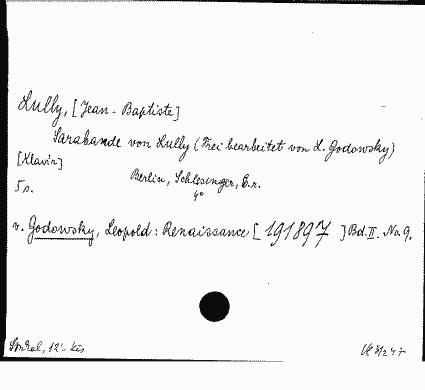 Lully, [Jean-Baptiste]
Sarabande von Lully (Frei bearbeitet von L. Godowsky)
[Klavir]
Berlin, Schlesinger, É.n.
5 o.
4°
v. Godowsky, Leopold: Renaissance [191897] Bd. II. No. 9.
12.- Kis